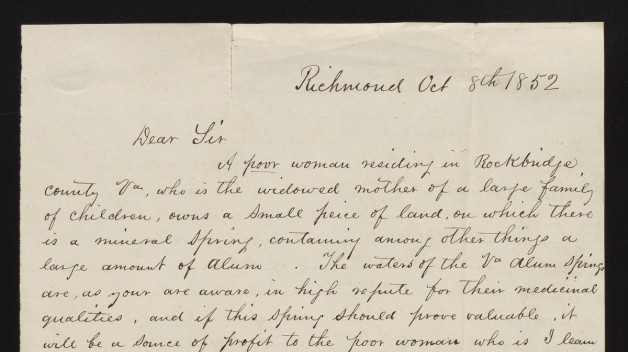 Richmond Oct 8th 1852
Dear Sir
A poor woman residing in Rockbridge
county Va, who is the widowed mother of a large family
of children, owns a small peice of land, on which there
is a mineral spring, containing among other things a
large amount of Alum. The waters of the Va Alum Springs
are, as your are aware, in high repute for their medicinal
qualities, and if this spring should prove valuable, it
will be a source of profit to the poor woman who is I learn